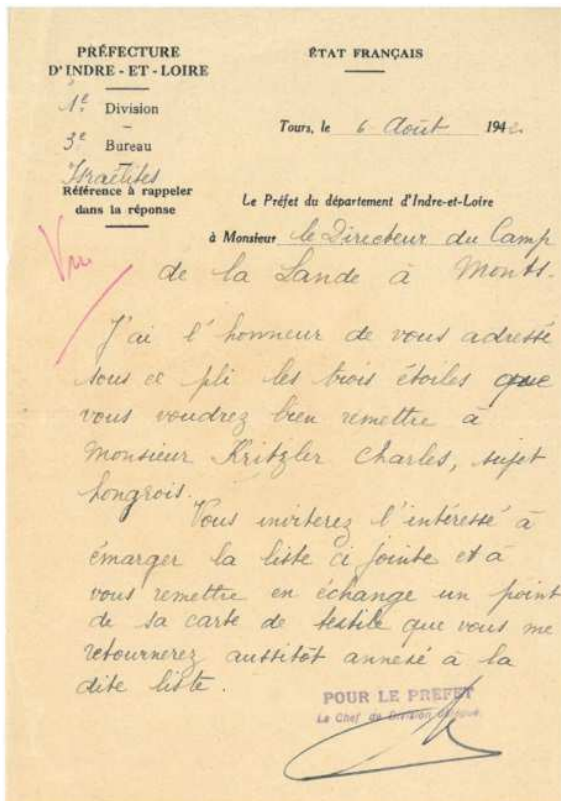 PRÉFECTURE
D'INDRE-ET-LOIRE
1e Division
3e Bureau
Israëlites
Référence à rappeler
dans la réponse
ÉTAT FRANÇAIS
Tours, le 6 Août 1942
Le Préfet du département d'Indre-et-Loire
à Monsieur le Directeur du Camp
de la Lande à Monts.
Vu
J'ai l'honneur de vous adressé
sous ce pli les trois étoiles que
vous voudrez bien remettre à
Monsieur Kritzler Charles, sujet
hongrois.
Vous inviterez l'intéressé à
émarger la liste ci jointe et à
vous remettre en échange un point
de sa carte de textile que vous me
retournerez aussitôt annexé à la
dite liste.
POUR LE PRÉFET
Le Chef de Division délégué